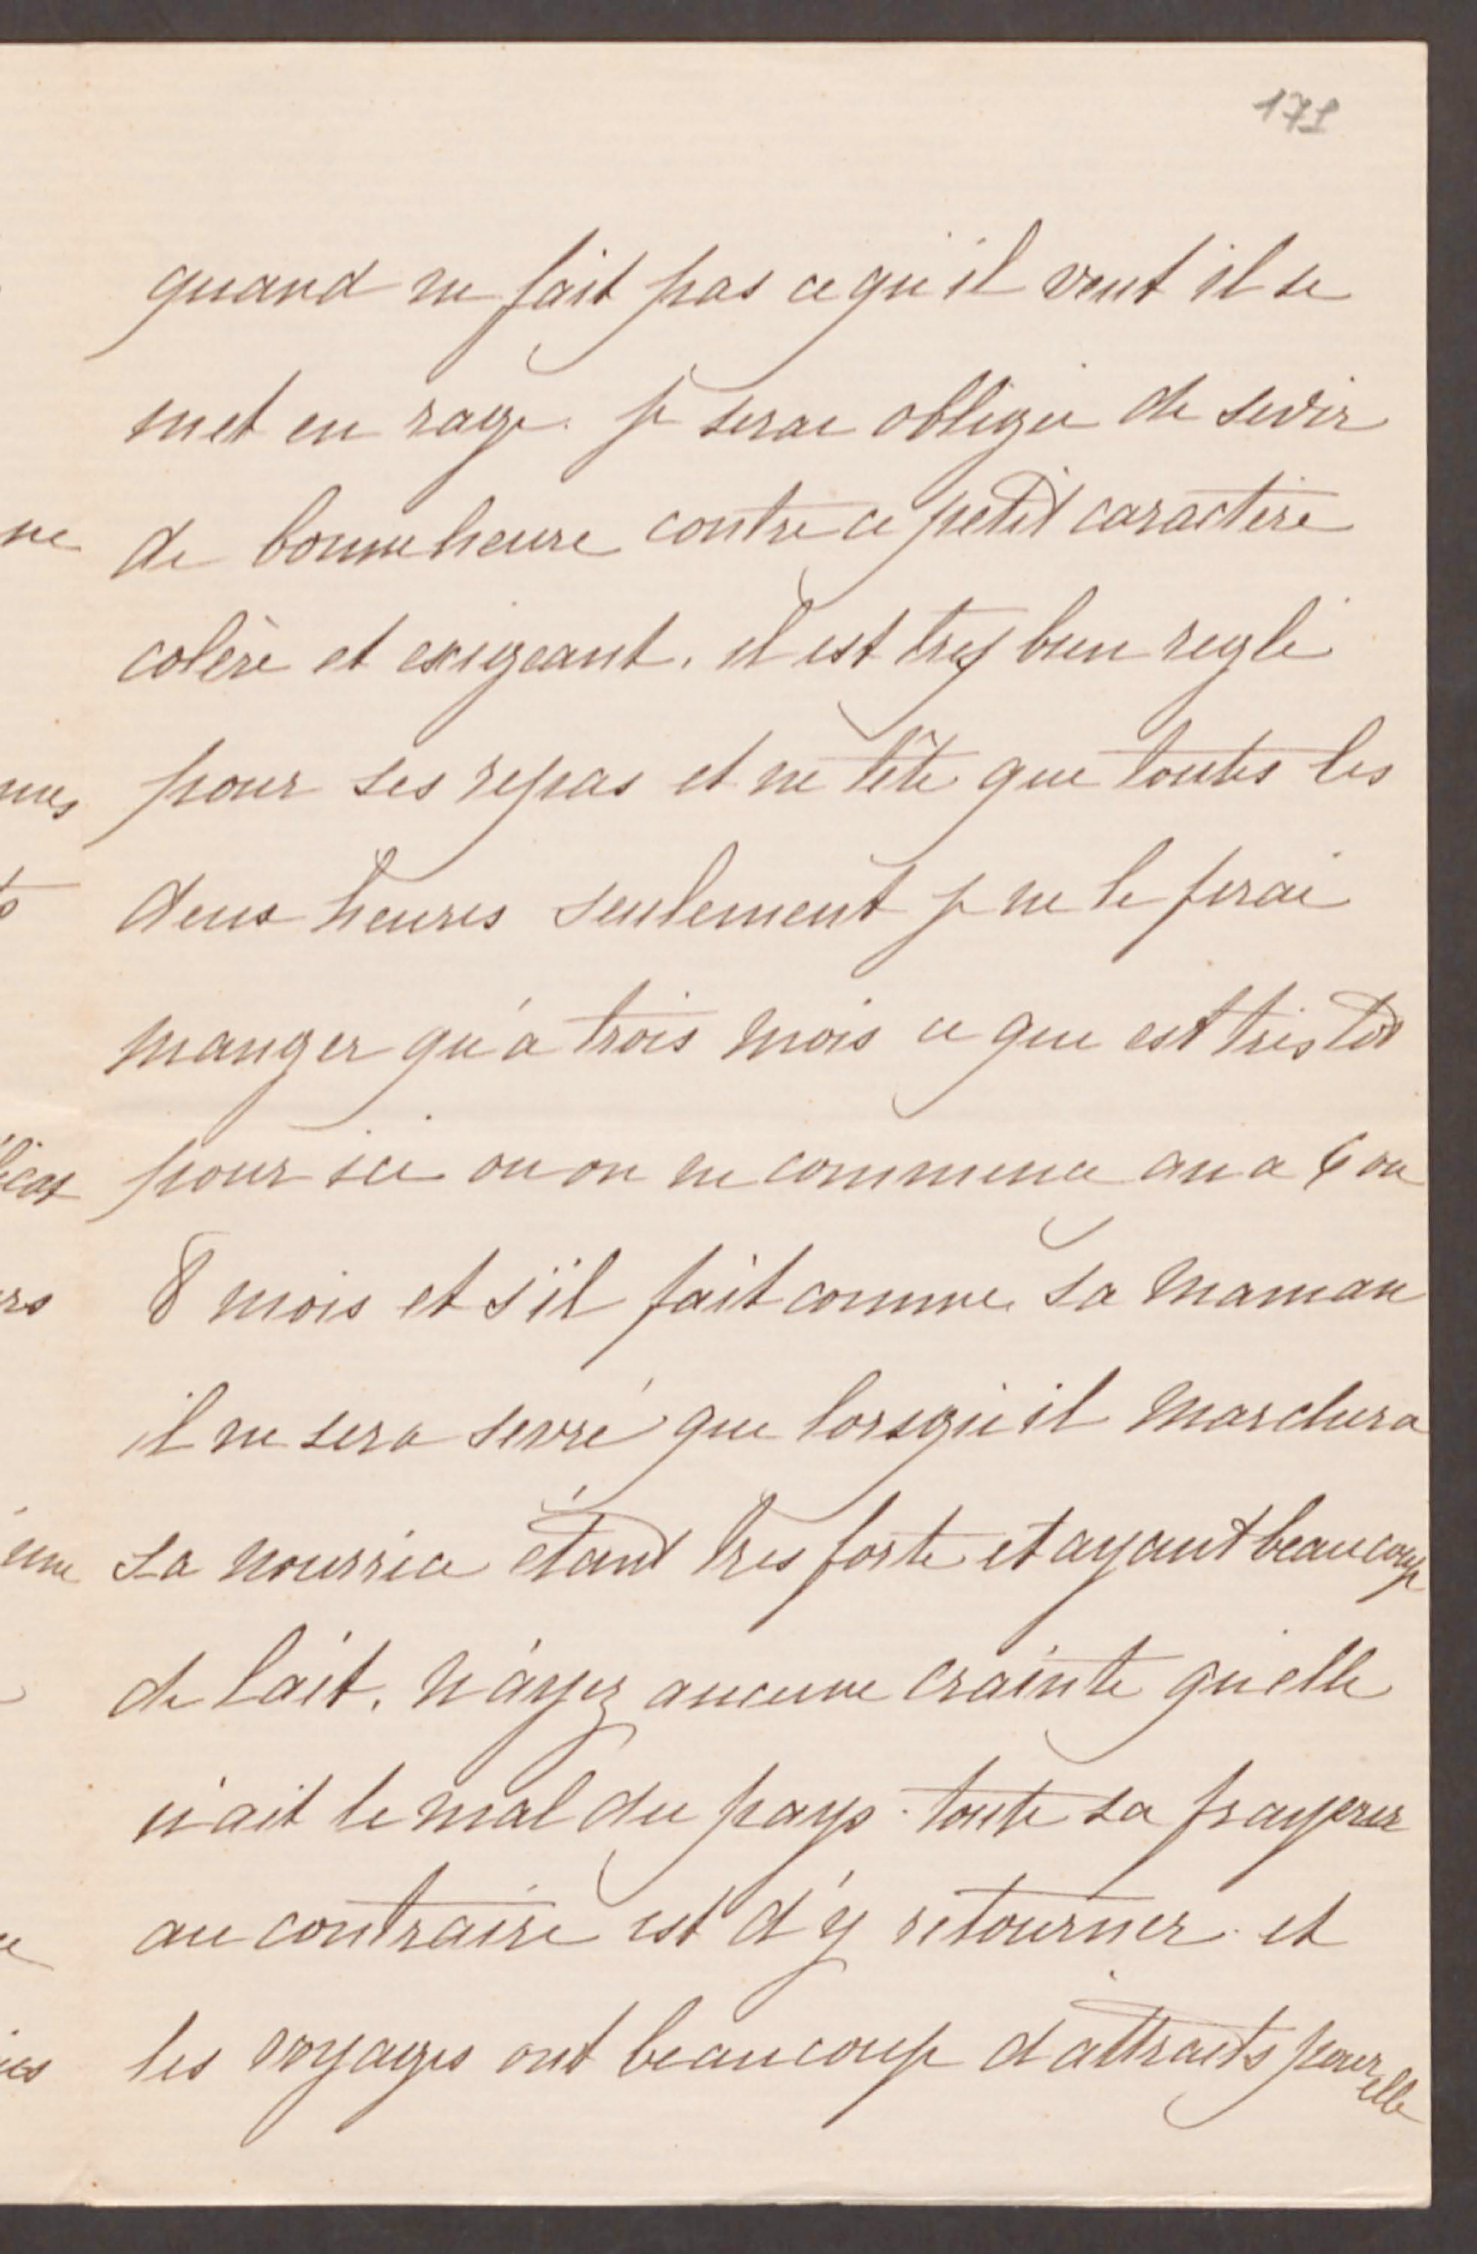 171
quand ne fait pas ce qu'il veut il se
met en rage. je serai obligée de sevir
de bonne heure contre ce petit caractère
colère et exigeant. il est tres bien reglé
pour ses repas et ne tête que toutes les
deux heures seulement je ne le ferai
manger qu'à trois mois ce que est très tôt
pour ici ou on ne commence au a 6 ou
8 mois et s'il fait comme sa maman
il ne sera sevré que lorsqu'il marchera
sa nourrice étant tres forte et ayant beaucoup
de lait. N'ayez aucune crainte qu'elle
n'ait le mal du pays. toute sa frayeur
au contraire est d'y retourner. et
les voyages ont beaucoup d'attraits pour
elle